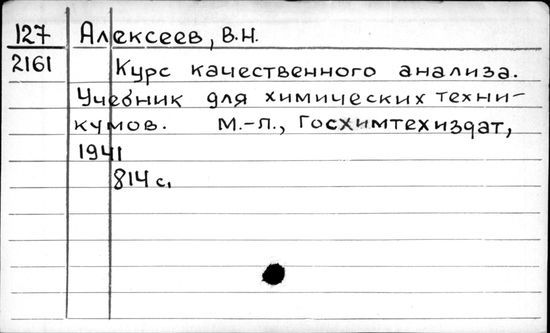 127 Алексеев, В.Н.
2161 Курс качественного анализа.
Учебник для химических техни-
кумов. М.-Л., Госхимтехиздат,
1941
814 с.